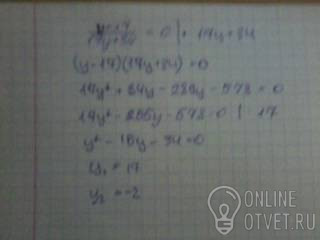 y-17/17y+34 = 0 | · 17y+34
(y-17)(17y+34)=0
17y²+34y-289y-578=0
17y²-255y-578=0 | 17
y²-15y-34=0
y₁=17
y₂=-2
ONLINE
OTVET.RU